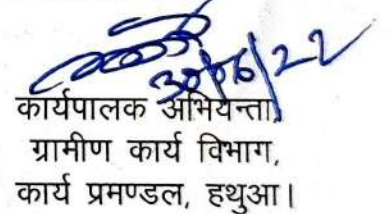 30/06/22
कार्यपालक अभियन्ता,
ग्रामीण कार्य विभाग,
कार्य प्रमण्डल, हथुआ।